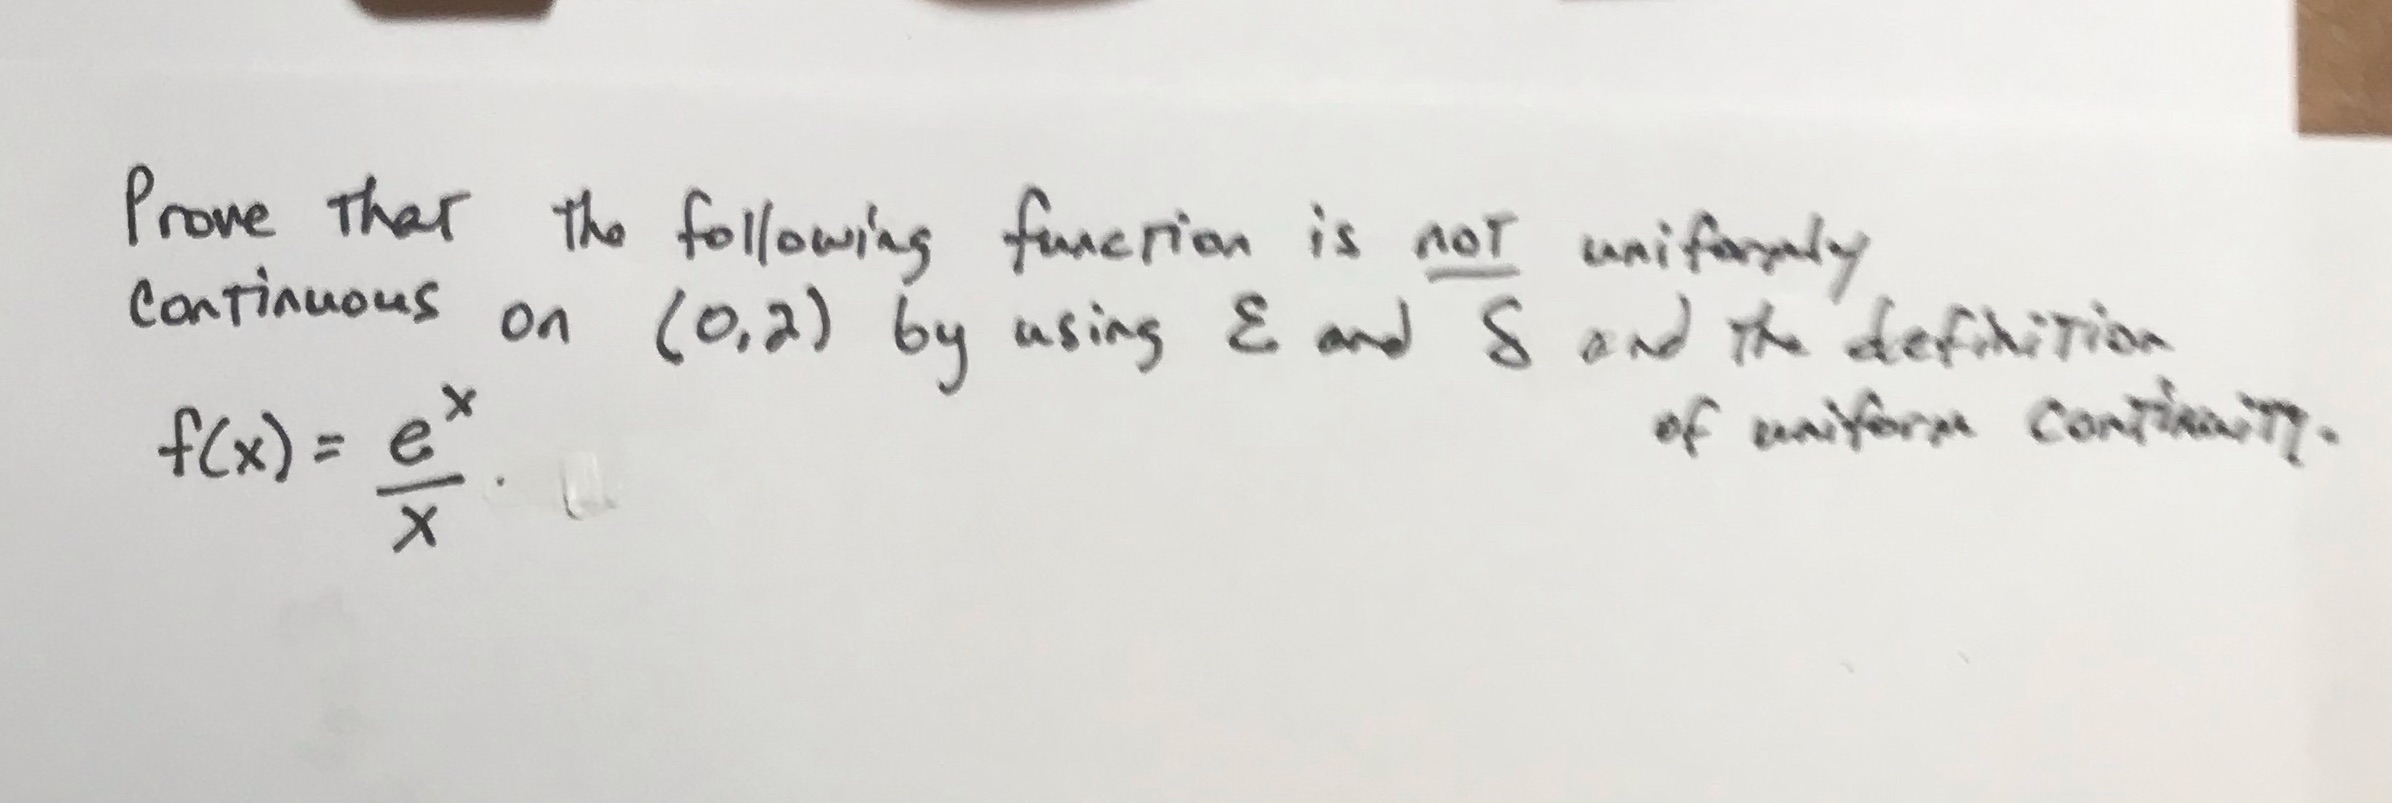 Prove that the following function is not uniformly
continuous on (0,2) by using ε and δ and the definition
of uniform continuity.
f(x) = e^x / x .